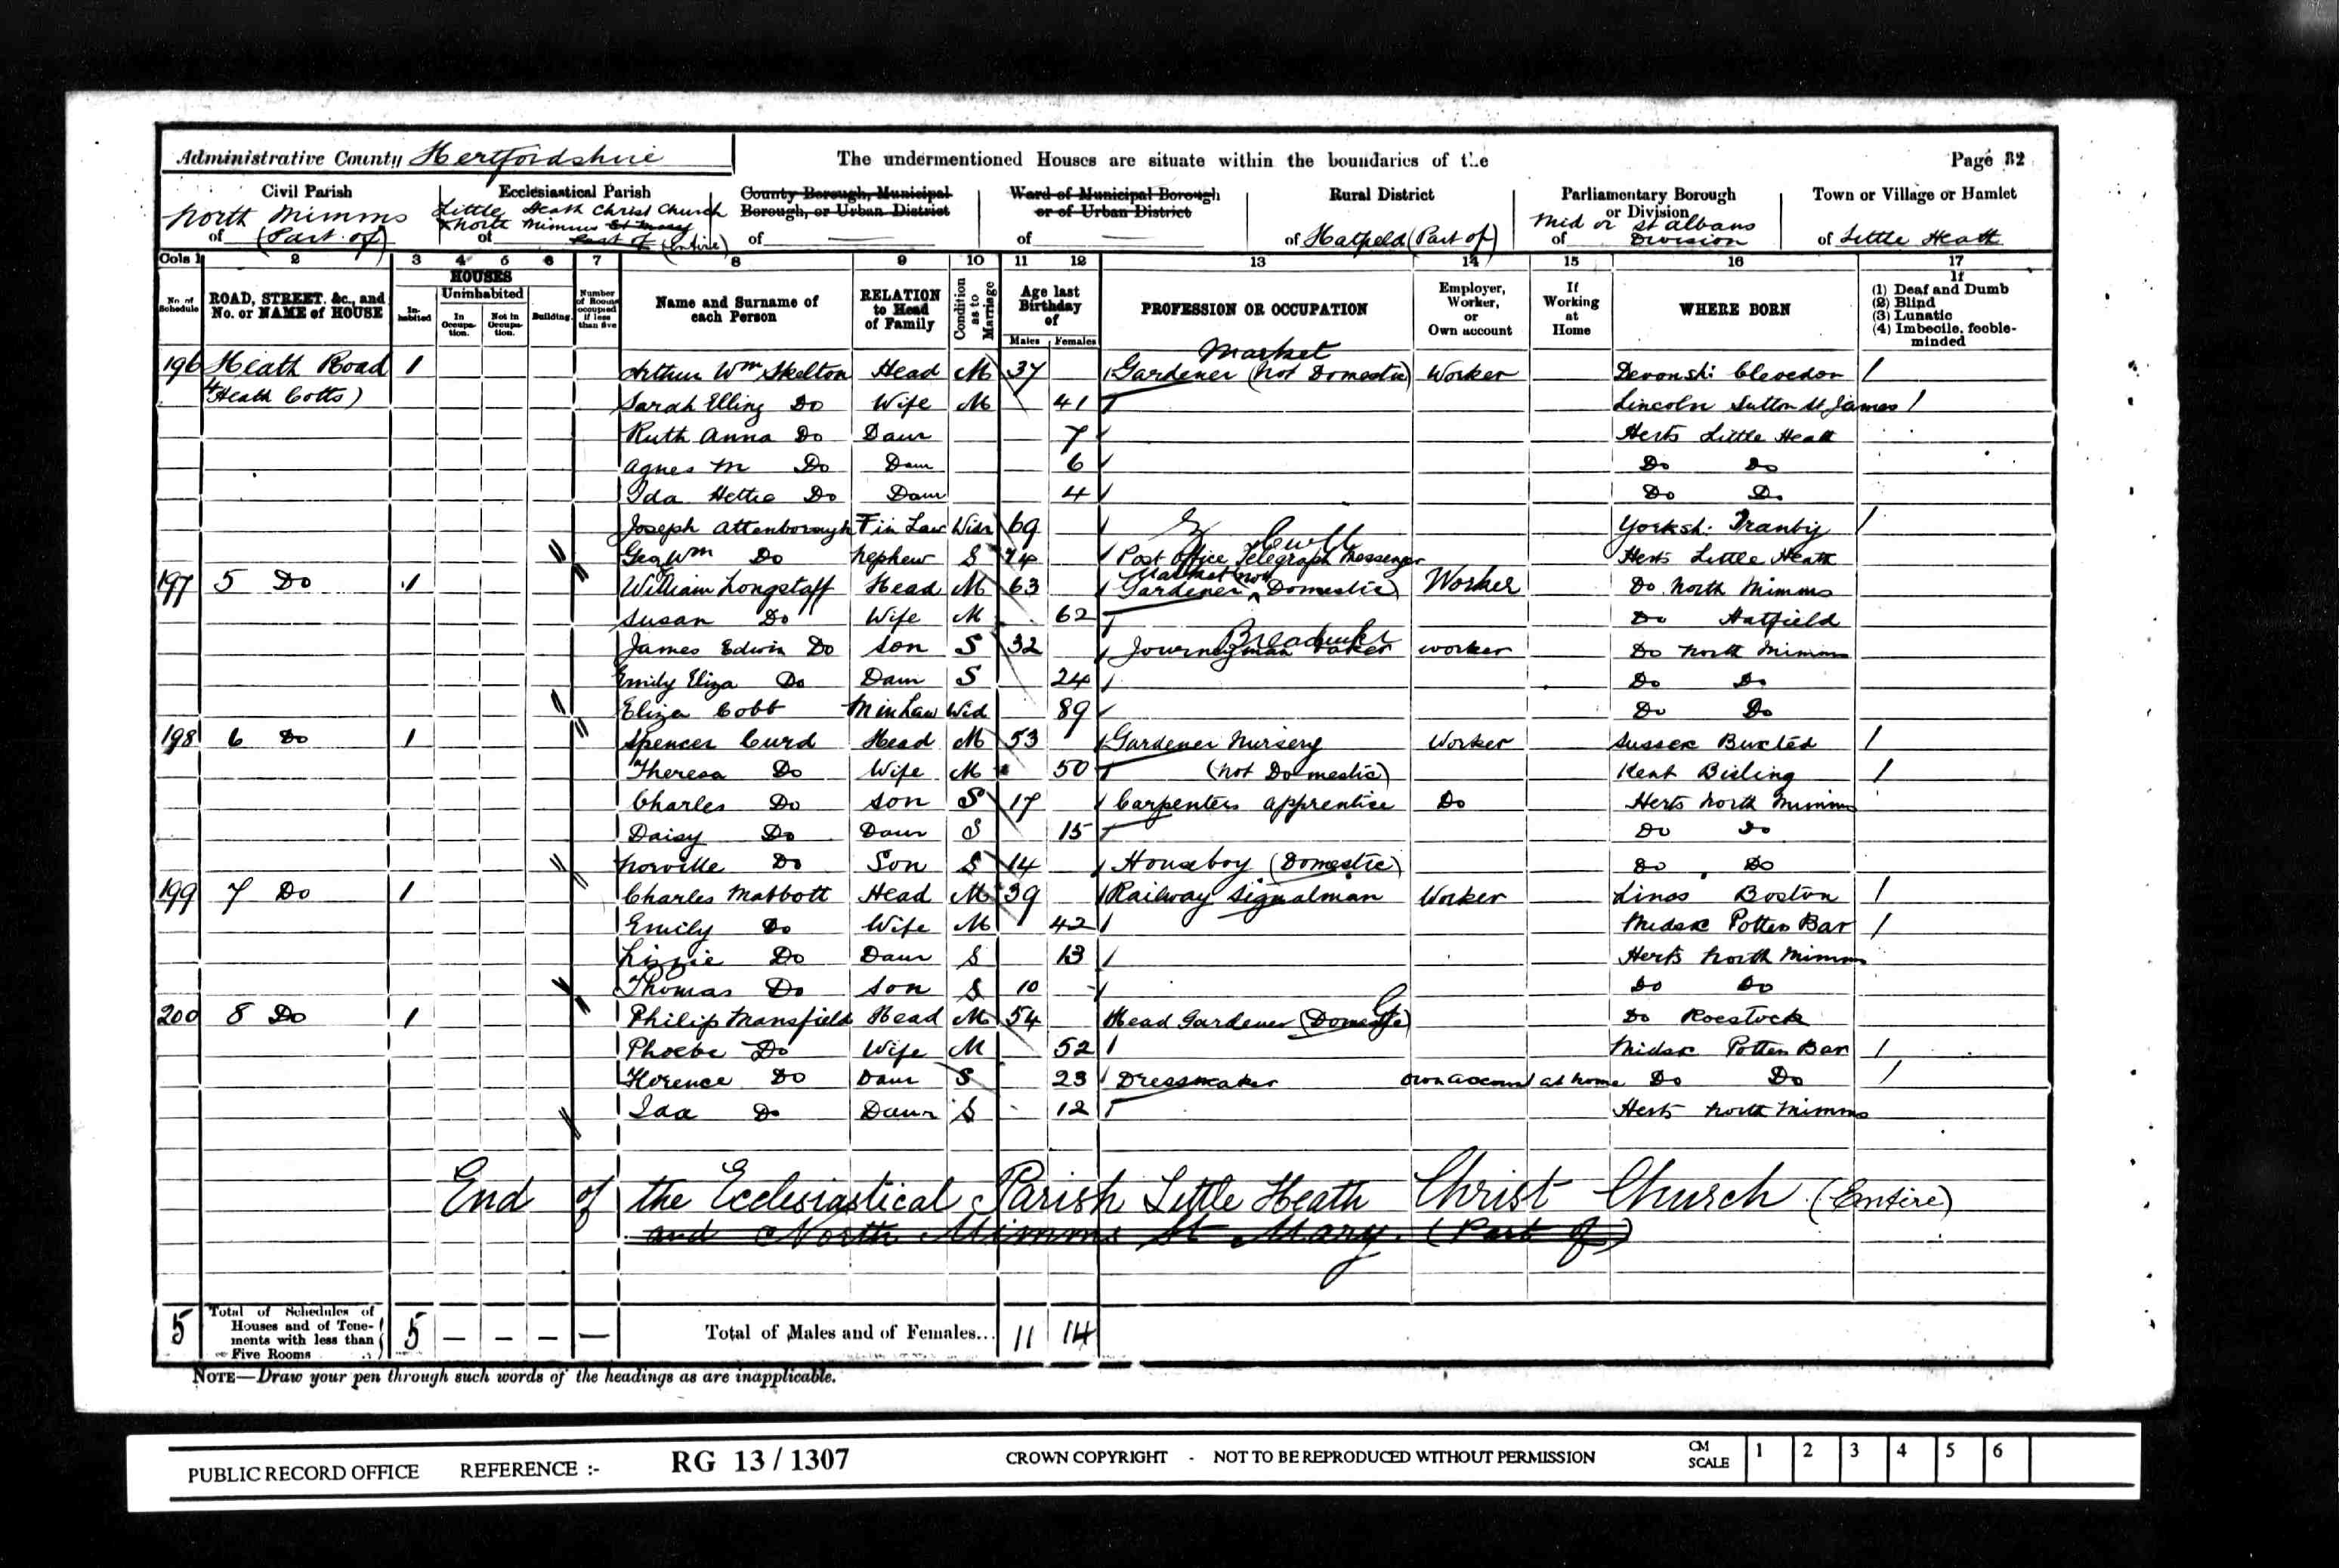 Administrative County Hertfordshire The undermentioned Houses are situate within the boundaries of the Page 32
Civil Parish Ecclesiastical Parish County Borough, Municipal Borough, or Urban District Ward of Municipal Borough or of Urban District Rural District Parliamentary Borough or Division Town or Village or Hamlet
North Mimms Little Heath Christ Church
North Mimms St Mary
of (Part of) of Part of (Entire) of of of Hatfield (Part of) Mid or St Albans of Division of Little Heath
Cols 1 2 3 4 5 6 7 8 9 10 11 12 13 14 15 16 17
No of Schedule ROAD, STREET, &c., and No. or NAME of HOUSE HOUSES Inhabited Uninhabited In Occupation. Not in Occupation. Building. Number of Rooms occupied if less than five Name and Surname of each Person RELATION to Head of Family Condition as to Marriage Age last Birthday of Males Females PROFESSION OR OCCUPATION Employer, Worker, or Own account If Working at Home WHERE BORN If (1) Deaf and Dumb (2) Blind (3) Lunatic (4) Imbecile, feeble-minded
Market
196 Heath Road 1 Arthur Wm Skelton Head M 37 Gardener (not Domestic) Worker Devonsh: Clevedon
4 Heath Cotts) Sarah Elling Do Wife M 41 Lincoln Sutton St James
Ruth Anna Do Daur 7 Herts Little Heath
Agnes M Do Daur 6 Do Do
Ida Hettie Do Daur 4 Do Do
Joseph Attenborough F in Law Widr 69 Yorksh:
Geo Wm Do Nephew S 14 Post Office Telegraph Messenger Herts Little Heath
Market not
197 5 Do 1 William Longstaff Head M 63 Gardener Domestic) Worker Do North Mimms
Susan Do Wife M 62 Do Hatfield
James Edwin Do Son S 32 Journeyman Baker worker Do North Mimms
Emily Eliza Do Daur S 24 Do Do
Eliza Cobb M in Law Wid 89 Do Do
198 6 Do 1 Spencer Curd Head M 53 Gardener Nursery Worker Sussex Buxted
Theresa Do Wife M 50 (not Domestic) Kent
Charles Do Son S 17 Carpenters apprentice Do Herts North Mimms
Daisy Do Daur S 15 Do Do
Norville Do Son S 14 Houseboy (Domestic) Do Do
199 7 Do 1 Charles Mabbott Head M 39 Railway Signalman Worker Lincs Boston
Emily Do Wife M 42 Midsx Potters Bar
Lizzie Do Daur S 13 Herts North Mimms
Thomas Do Son S 10 Do Do
200 8 Do 1 Philip Mansfield Head M 54 Head Gardener (Domestic) Do Roestock
Phoebe Do Wife M 52 Midsx Potters Bar
Florence Do Daur S 23 Dressmaker own account at home Do Do
Ida Do Daur S 12 Herts North Mimms
End of the Ecclesiastical Parish Little Heath Christ Church (Entire)
and North Mimms St Mary. (Part of)
5 Total of Schedules of Houses and of Tenements with less than Five Rooms 5 – – – – Total of Males and of Females... 11 14
NOTE—Draw your pen through such words of the headings as are inapplicable.
PUBLIC RECORD OFFICE REFERENCE :- RG 13 / 1307 CROWN COPYRIGHT - NOT TO BE REPRODUCED WITHOUT PERMISSION CM SCALE 1 2 3 4 5 6